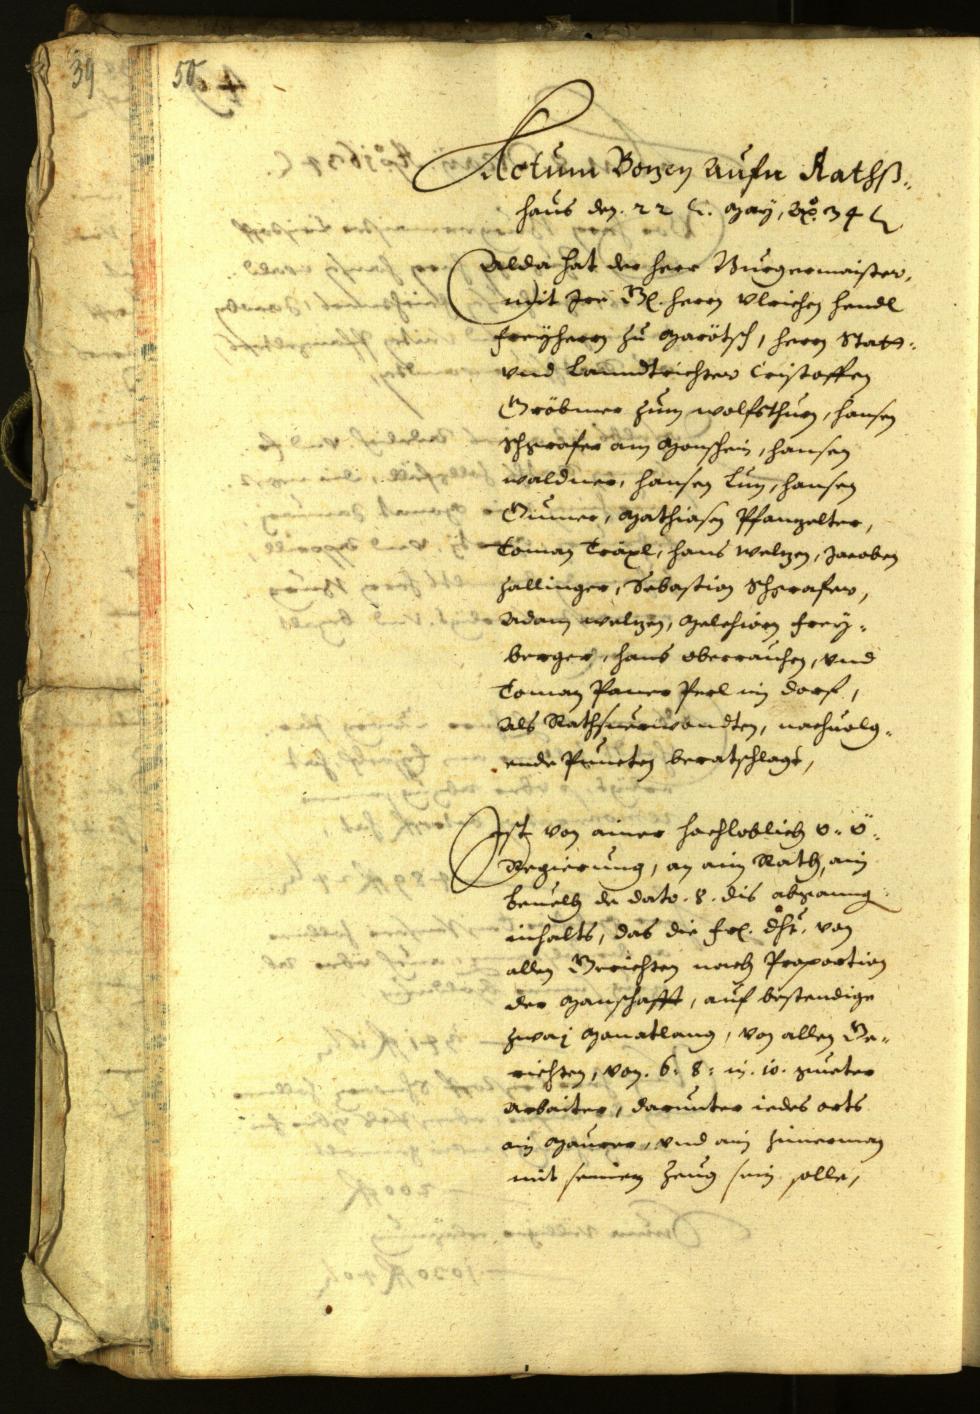 39
50
Actum Bozen Aufn Rathß-
haus den. 22 t. May, Aõ. 34 t
Alda hat der herr Burgermaister,
mit Ire Gl. herrn Vlrichen hendl
freyherrn zu Marötsch, herrn Statt-
vnd Lanndtrichter Cristoffen
Gröbmer zum wolfsthurn, hansen
Schgrafer am Monschein, hansen
waldner, hansen Lun, hansen
Gumer, Mathiasen Pfanzelter,
Toman Träxl, hans Welzen, Jacoben
zallinger, Sebastian Schgrafer,
Adam welzen, Melchiorn frey-
berger, hans oberrauchen, vnd
Toman Paner Perl im dorf,
als Rathsuerwondten, nachuolg-
ende Puncten beratschlagt,
Ist von ainer hochloblich o: ö:
Regierung, an ain Rath, ain
beuelch de dato. 8. dis abganng
inhalts, das die frl. dht. von
allen Gerichten nach Proportion
der Manschafft, auf bestendige
zway Monatlang, von allen Ge-
richten, von. 6: 8: in. 10. gueter
Arbaiter, darunter iedes orts
ain Maurer, vnd ain zimerman
mit seinem zeug sein solle,